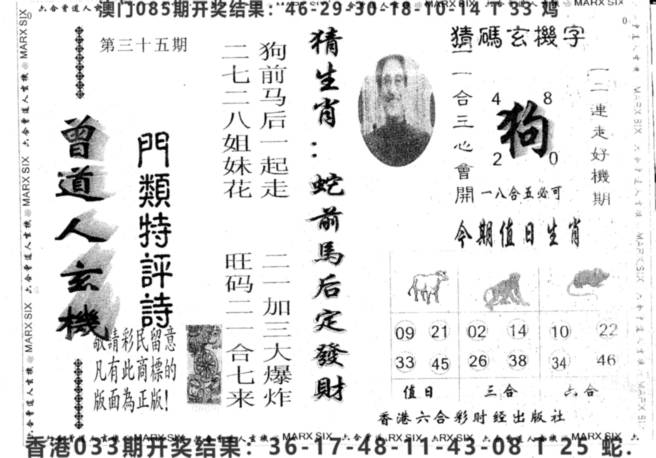 澳门085期开奖结果：46-29-30-18-10-14 T 33 鸡
第三十五期
曾道人玄機
門類特評詩
敬請彩民留意
凡有此商標的
版面為正版！
狗前马后一起走
二七二八姐妹花
二一加三大爆炸
旺码二一合七来
猜生肖：蛇前馬后定發財
猜碼玄機字
一二連走好機期
狗
4 8
2 0
一一合三心會開
一八合五必可
今期值日生肖
09 21 02 14 10 22
33 45 26 38 34 46
值日 三合 六合
香港六合彩财经出版社
六合曾道人玄機 MARX SIX
香港033期开奖结果：36-17-48-11-43-08 T 25 蛇.